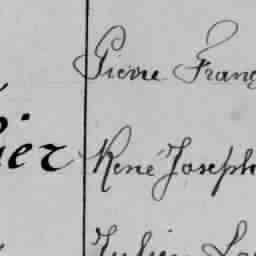 Pierre Franç
ier René Joseph
Julien